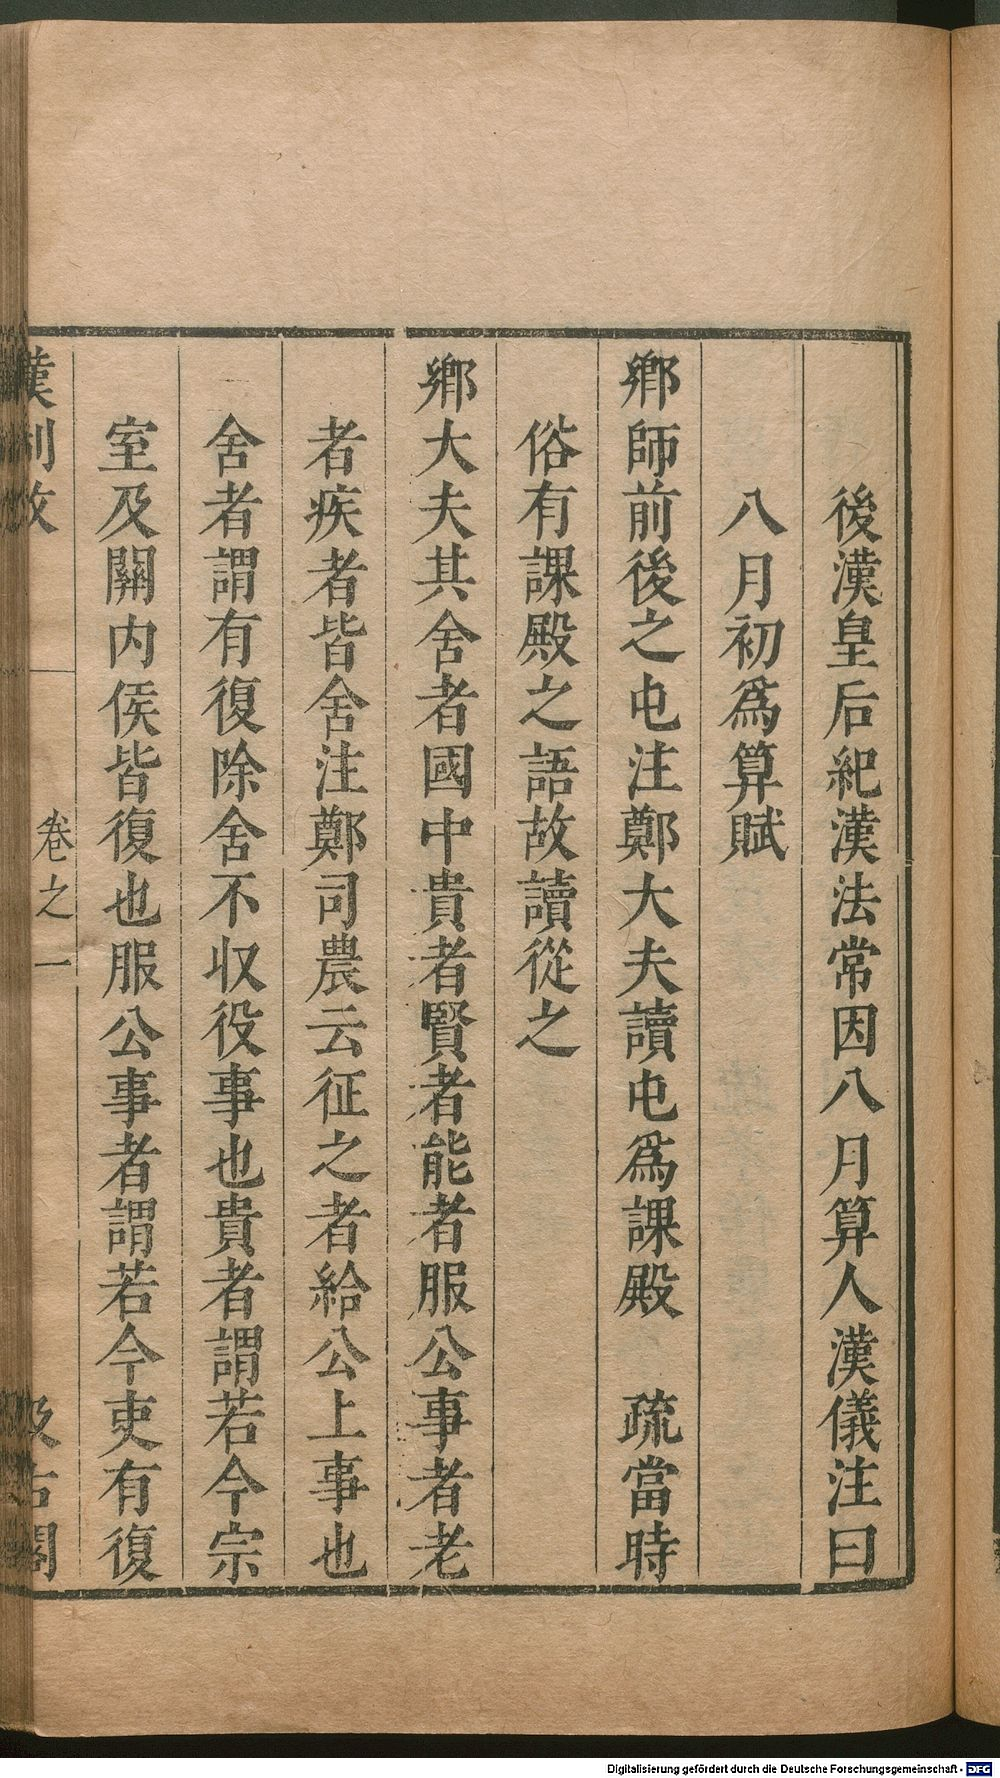 後漢皇后紀漢法常因八月算人漢儀注曰
八月初爲算賦
鄉師前後之屯注鄭大夫讀屯爲課殿　疏當時
俗有課殿之語故讀從之
鄉大夫其舍者國中貴者賢者能者服公事者老
者疾者皆舍注鄭司農云征之者給公上事也
舍者謂有復除舍不収役事也貴者謂若今宗
室及關内侯皆復也服公事者謂若今吏有復
漢制攷　卷之一　汲古閣
Digitalisierung gefördert durch die Deutsche Forschungsgemeinschaft - DFG